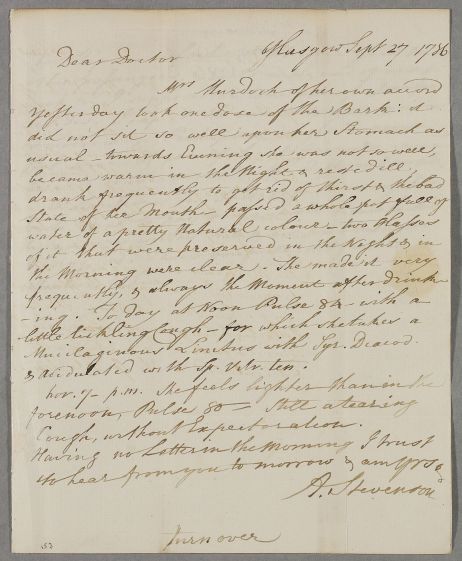 Glasgow Sept 27, 1786
Dear Doctor
Mrs Murdoch of her own accord
yesterday took one dose of the Bark: it
did not sit so well upon her Stomach as
usual – towards Evening she was not so well,
became warm in the Night & rested ill,
drank frequently to get rid of thirst & the bad
State of her Mouth – passed a whole pot full of
water of a pretty Natural colour – two Glasses
of it that were preserved in the Night & in
the Morning were clear. She made it very
frequently, & always the Moment after drink-
-ing. To day at Noon Pulse 84 – with a
little tickling Cough – for which she takes a
Mucilaginous Linctus with Syr. Diacod.
& acidulated with Sp. Vitr. ten.
hor. 7 – p.m. She feels lighter than in the
forenoon, Pulse 80 – Still a tearing
Cough, without Expectoration.
Having no Letter in the Morning I trust
to hear from you to morrow & am Yrs
A. Stevenson
Turn over
53